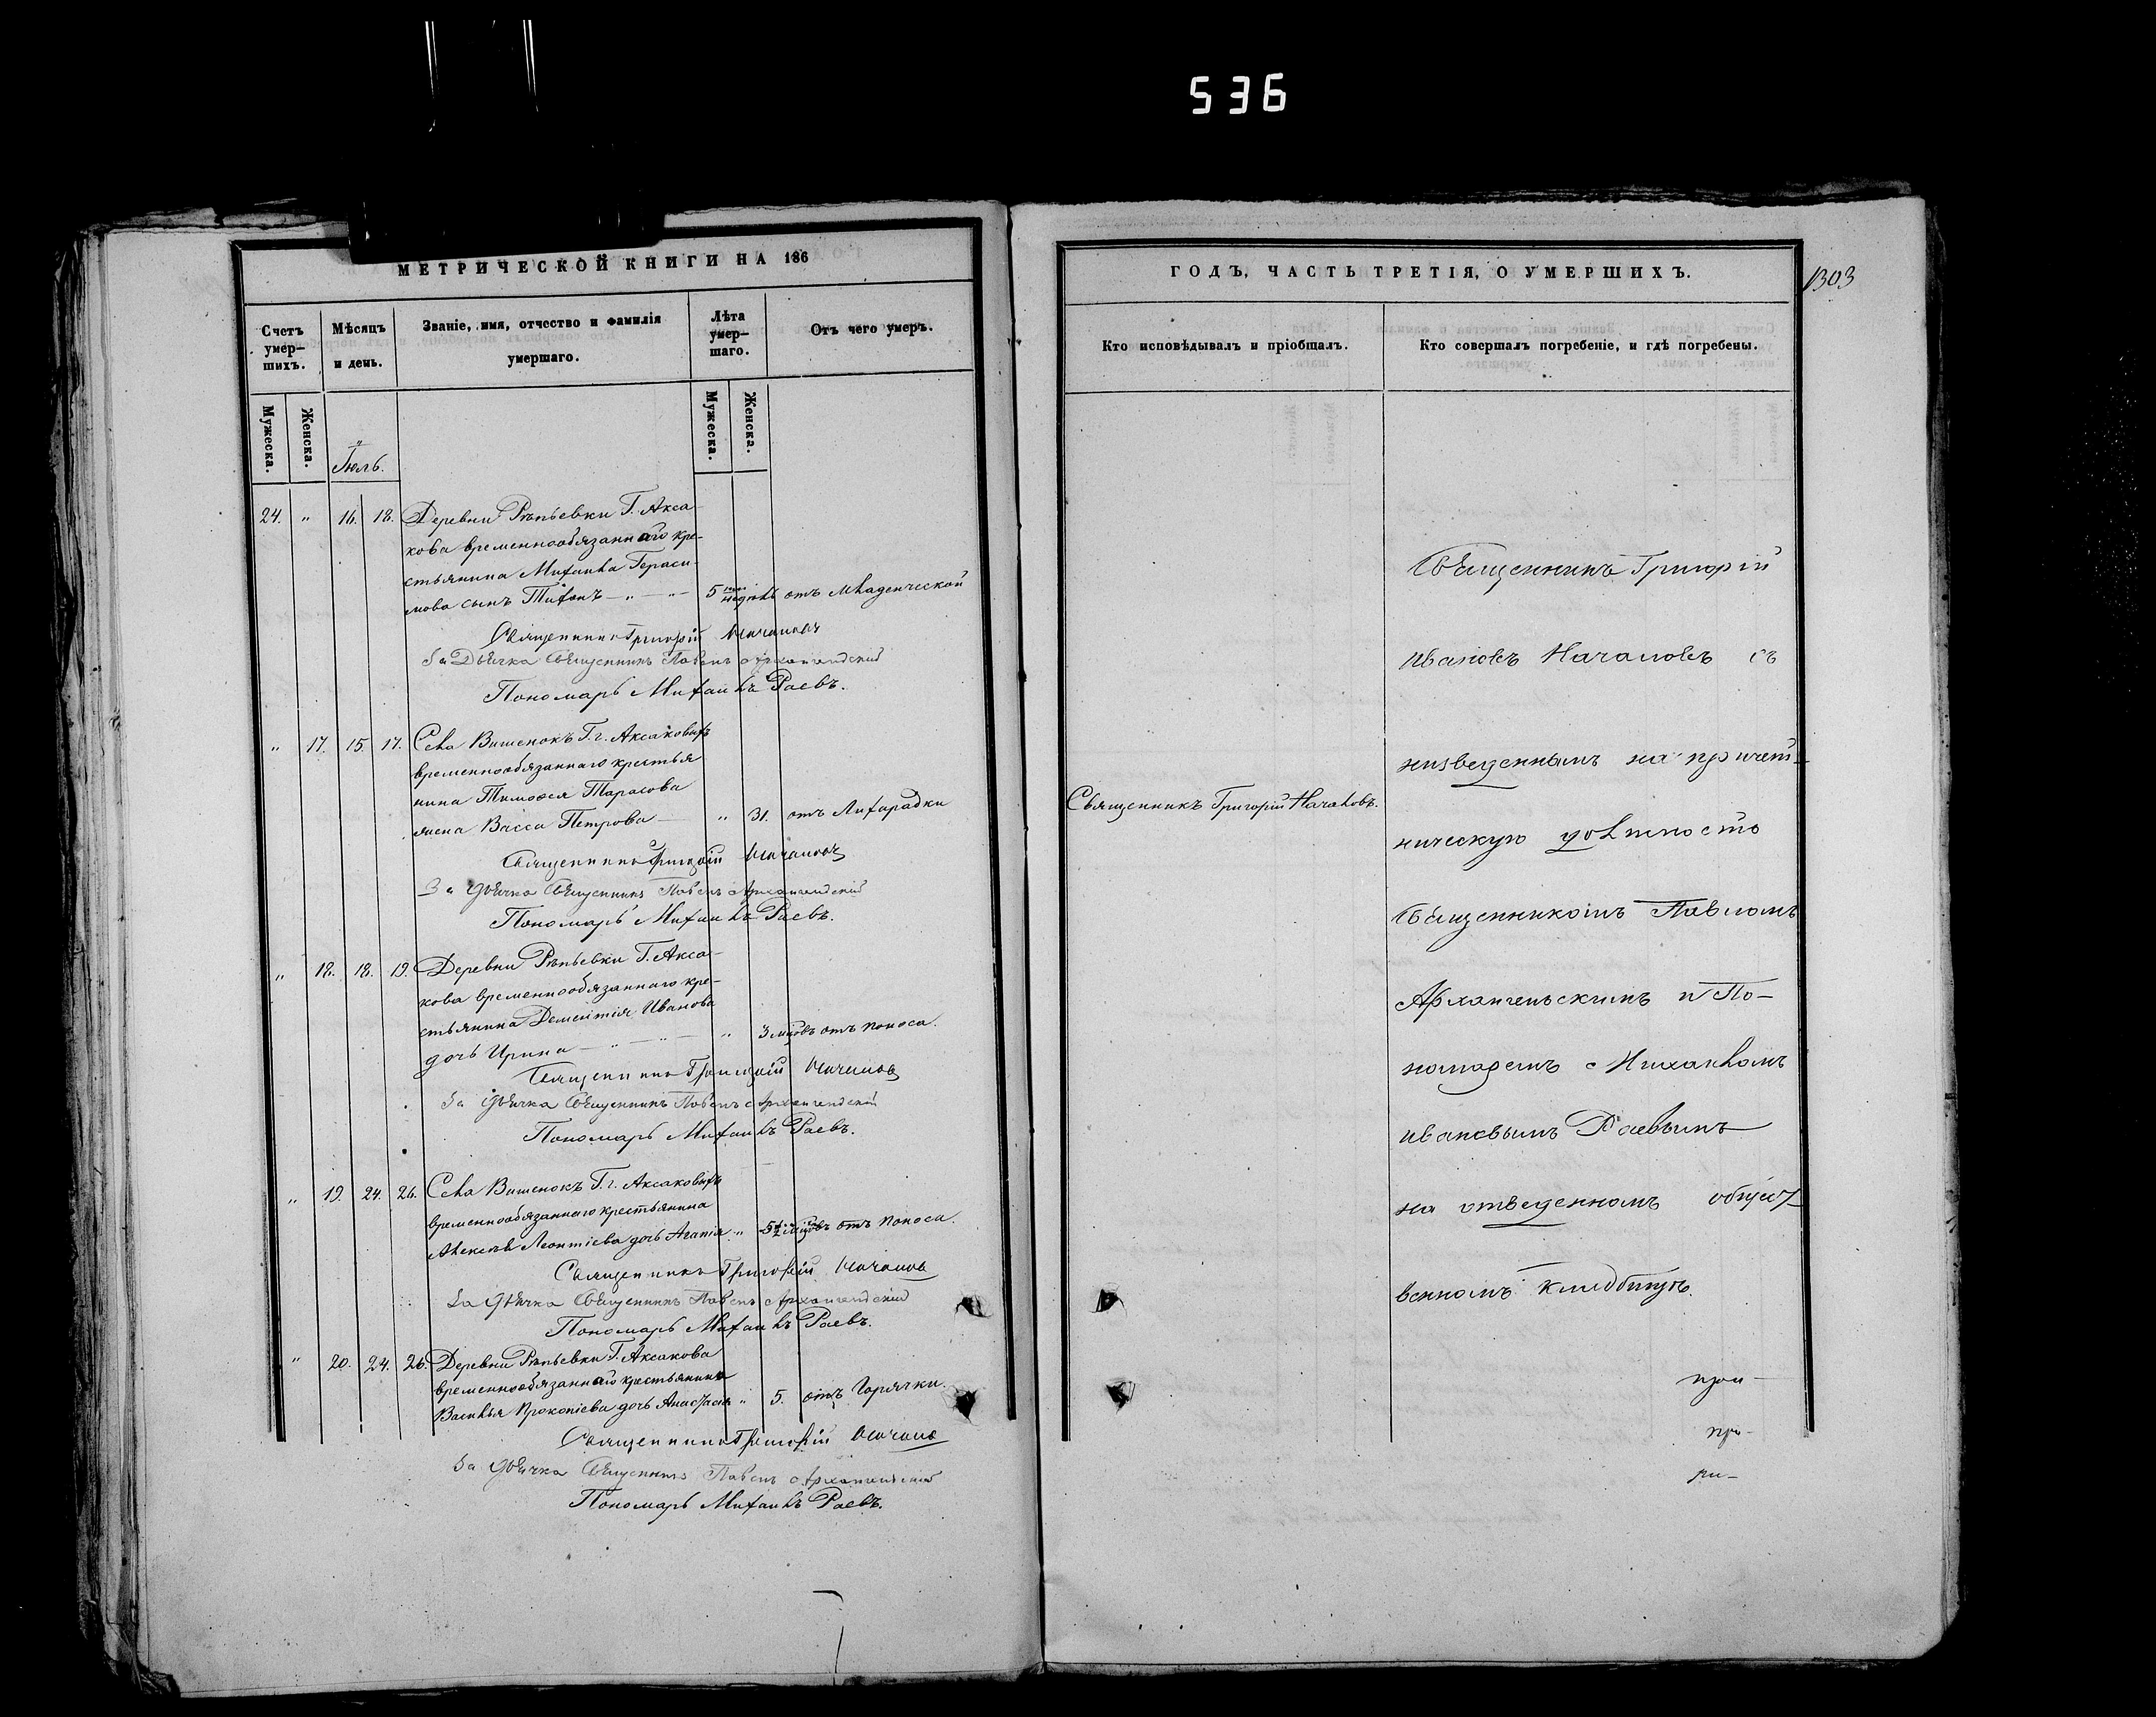 536
МЕТРИЧЕСКОЙ КНИГИ НА 186
Счетъ умер-шихъ.
Мѣсяцъ и день.
Званіе, имя, отчество и фамилія умершаго.
Лѣта умер-шаго.
Отъ чего умеръ.
Мужеска.
Женска.
Іюль.
Мужеска.
Женска.
24. " 16. 18. Деревни Рѣпьевки Г. Акса-
кова временнообязаннаго кре-
стьянина Михаила Гераси-
мова сынъ Тихонъ — " — " — 5 недѣль отъ младенческой
Священникъ Григорій Началовъ
За Дьячка Священникъ Павелъ Архангельскій
Пономарь Михаилъ Раевъ.
" 17. 15. 17. Села Вишенокъ Г. г. Аксаковыхъ
временнообязаннаго крестья
нина Тимоѳея Тарасова
жена Васса Петрова — " 31. отъ Лихорадки
Священникъ Григорій Началовъ
За дьячка Священникъ Павелъ Архангельскій
Пономарь Михаилъ Раевъ.
" 18. 18. 19. Деревни Рѣпьевки Г. Акса-
кова временнообязаннаго кре-
стьянина Дементія Иванова
дочь Ирина — " — " — " 3 мцовъ отъ поноса.
Священникъ Григорій Началовъ
За дьячка Священникъ Павелъ Архангельскій
Пономарь Михаилъ Раевъ.
" 19. 24. 26. Села Вишенокъ Г. г. Аксаковыхъ
временнообязаннаго крестьянина
Алексѣя Леонтіева дочь Агапія " 5½ мцовъ отъ поноса.
Священникъ Григорій Началовъ
За дьячка Священникъ Павелъ Архангельскій
Пономарь Михаилъ Раевъ.
" 20. 24. 26. Деревни Рѣпьевки Г. Аксакова
временнообязаннаго крестьянина
Василья Прокопіева дочь Анастасія " 5. отъ Горячки.
Священникъ Григорій Началовъ
За дьячка Священникъ Павелъ Архангельскій
Пономарь Михаилъ Раевъ.
ГОДЪ, ЧАСТЬ ТРЕТІЯ, О УМЕРШИХЪ.
1303
Кто исповѣдывалъ и пріобщалъ.
Кто совершалъ погребеніе, и гдѣ погребены.
Священникъ Григорій Началовъ.
Священникъ Григорій
Ивановъ Началовъ съ
низведеннымъ на причет-
ническую должность
Священникомъ Павломъ
Архангельскимъ и По-
номаремъ Михаиломъ
Ивановымъ Раевымъ
на отведенномъ общест-
венномъ кладбищѣ.
при-